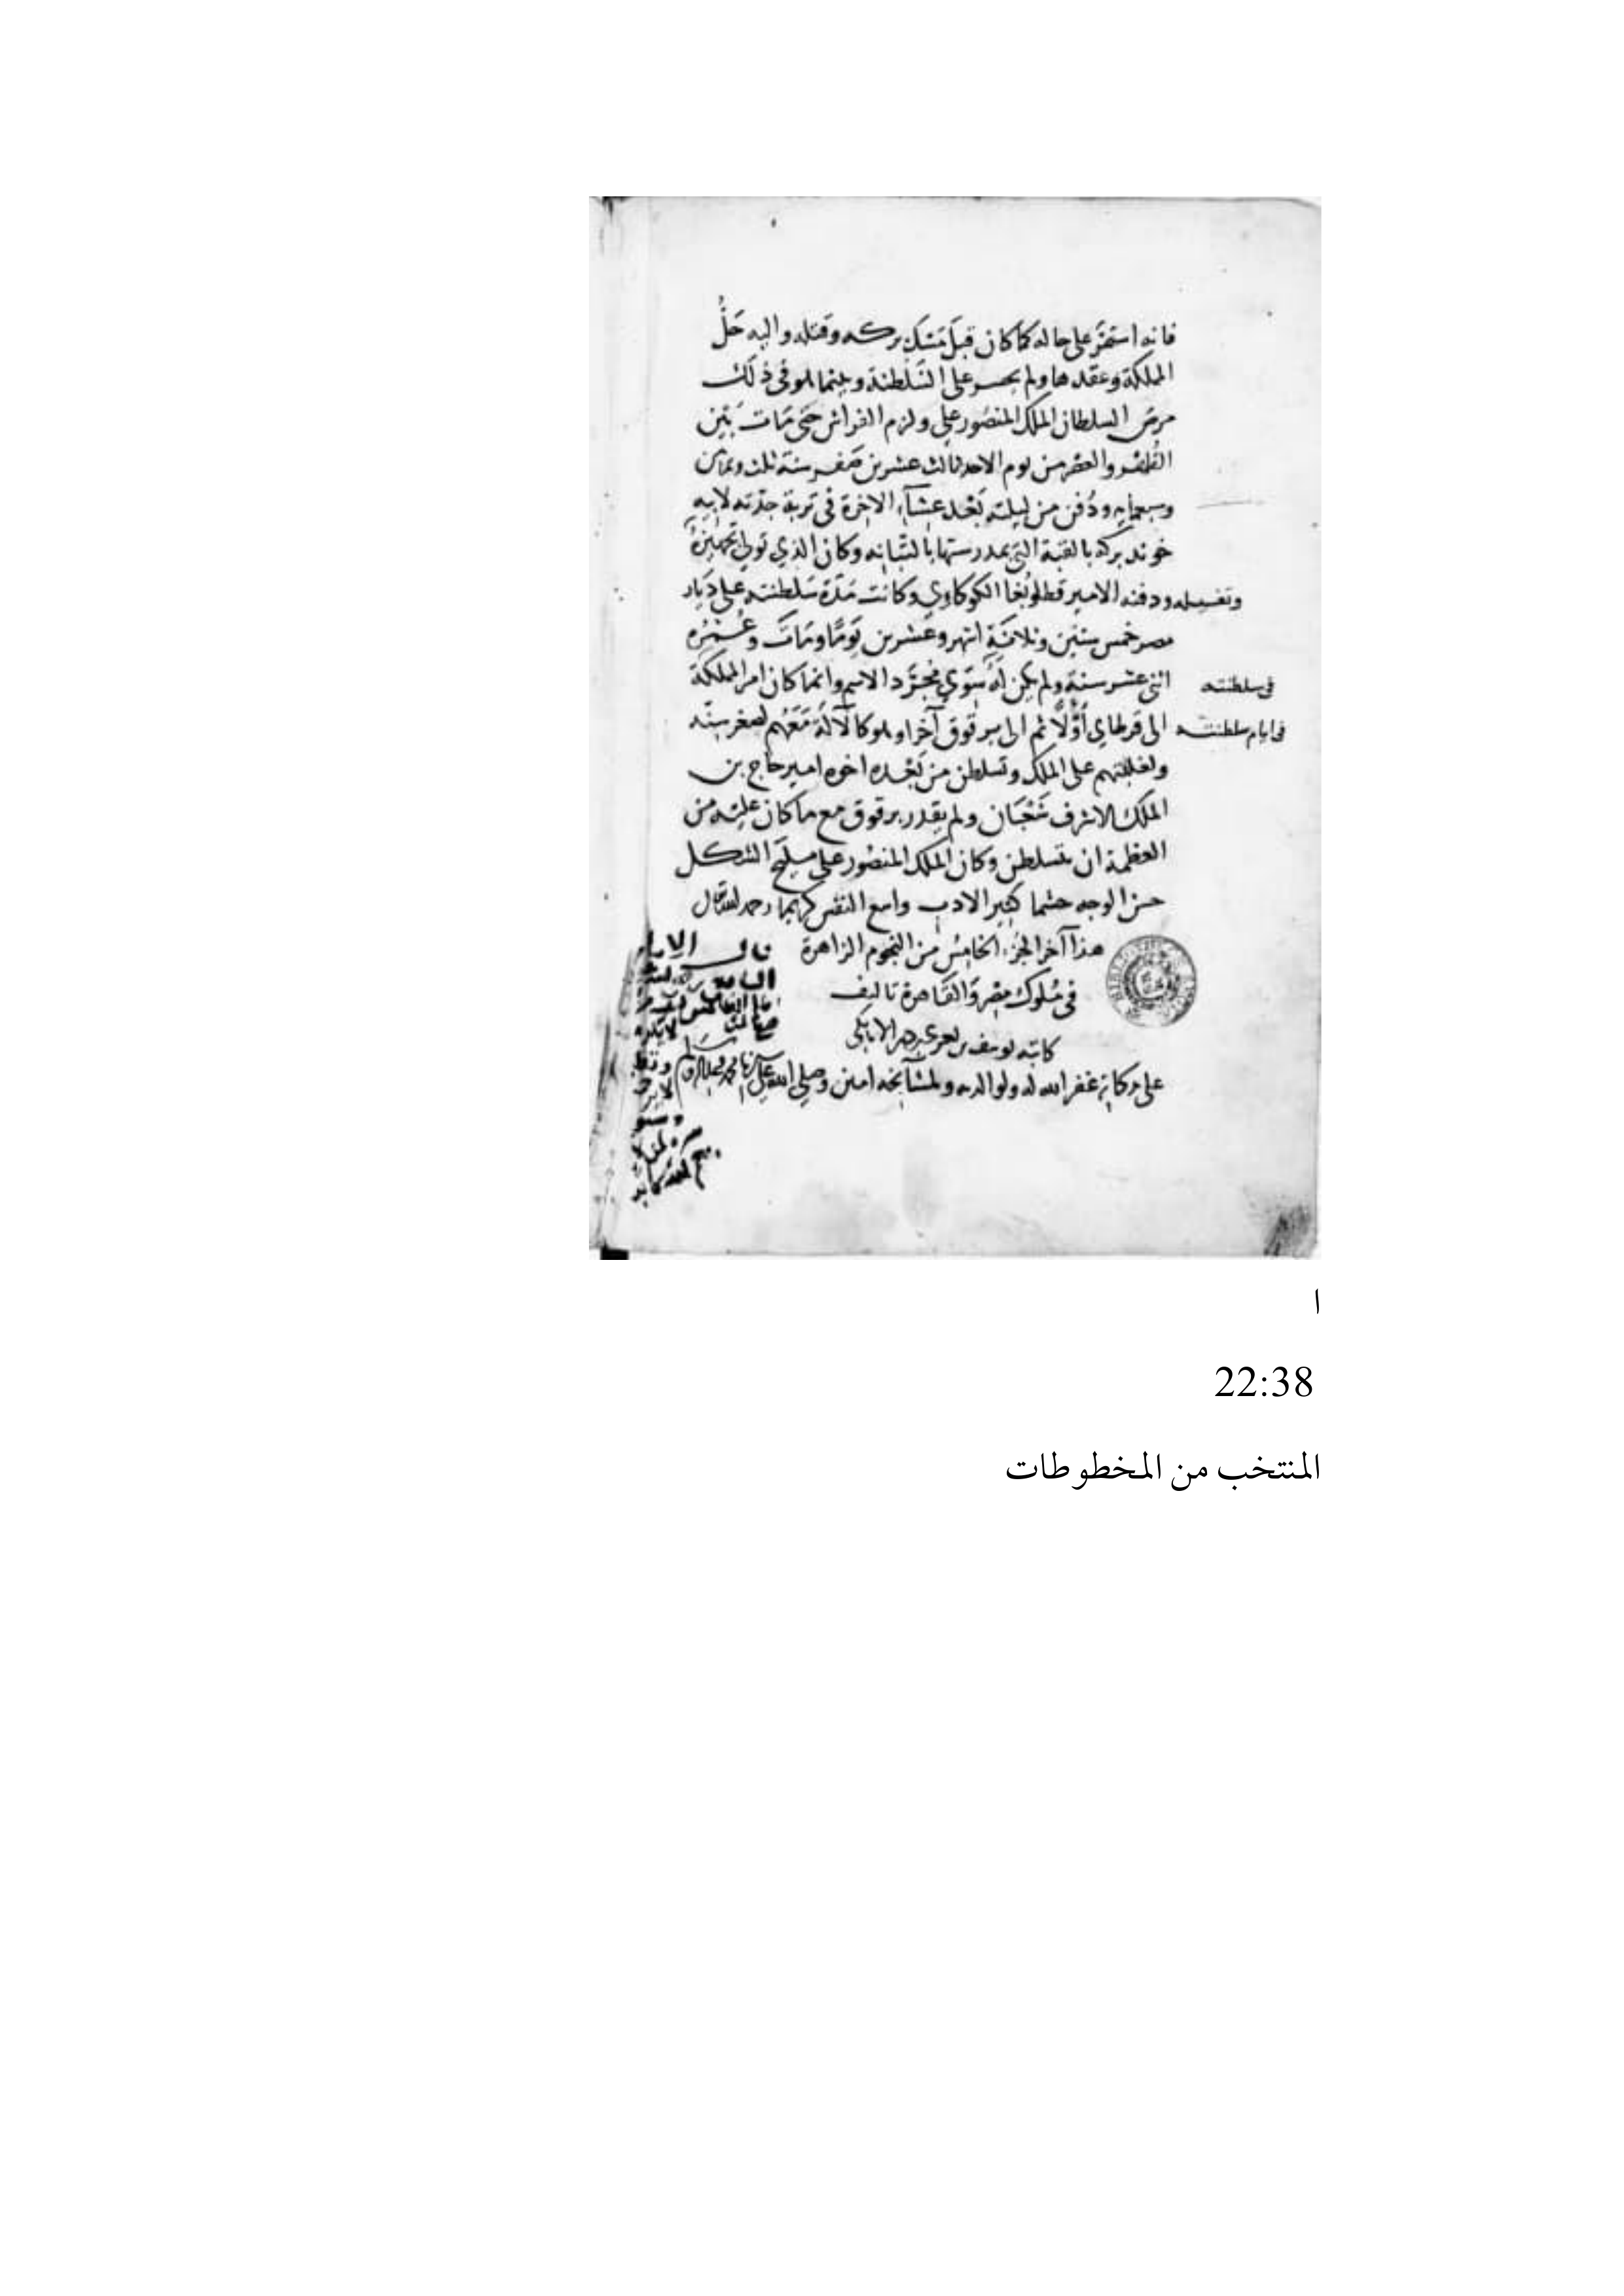 فانه استمَرّ على حاله كما كان قبلَ مَسْك بركه وقتله واليه حَلُّ
المملكة وعقدها ولم يجسر على السَّلطنة وبينما هو فى ذلك
مرض السلطان الملك المنصُور على ولزم الفراش حتى مَات بَيْن
الظهْر والعصْر من يوم الاحد ثالث عشرين صَفر سنة ثلث وثمانين
وسبعمايه ودُفن من ليلته بَعْد عِشَآءِ الاخِرة فى تربة جدّته لابيه
خوند بركه بالقبة التى بمدرستها بالتبانه وكان الذي تولى تجهيزهُ
وتغسيله ودفنه الامير قطلوبُغا الكوكاوي وكانت مُدّة سَلطنته على دِيَار
مصر خمس سنين وثلاثة اشهر وعشرين يَومًا ومَات وعُمْرُه
اثنى عشر سنة ولم يكن لَهُ سِوَي مُجرّد الاسم وانما كان امر المملكة
فى سلطنته
الى قرطاي أوّلاً ثم الى برقوق آخرا وهو كالآلة مَعَهُم لصغر سِنّه
فى ايام سلطنته
ولغلبتهم على الملك وتسلطن من بَعْده اخوه امير حَاج بن
الملك الاشرف شعْبَان ولم يقدر برقوق مع ما كان عليْه من
العظمة ان يتسلطن وكان الملك المنصُور على مليح الشكل
حسن الوجه حشما كثير الادب واسع النفس كريما رحمه الله تعالى
هذا آخر الجزء الخامِس من النجوم الزاهرة
فى مُلوك مِصْر وَالقَاهرة تاليف
كاتبه يوسف بن تغرى بردى الاتابكى
غفر الله له ولوالديه ولمشآيخه امين وصلى الله على
ا
22:38
المنتخب من المخطوطات